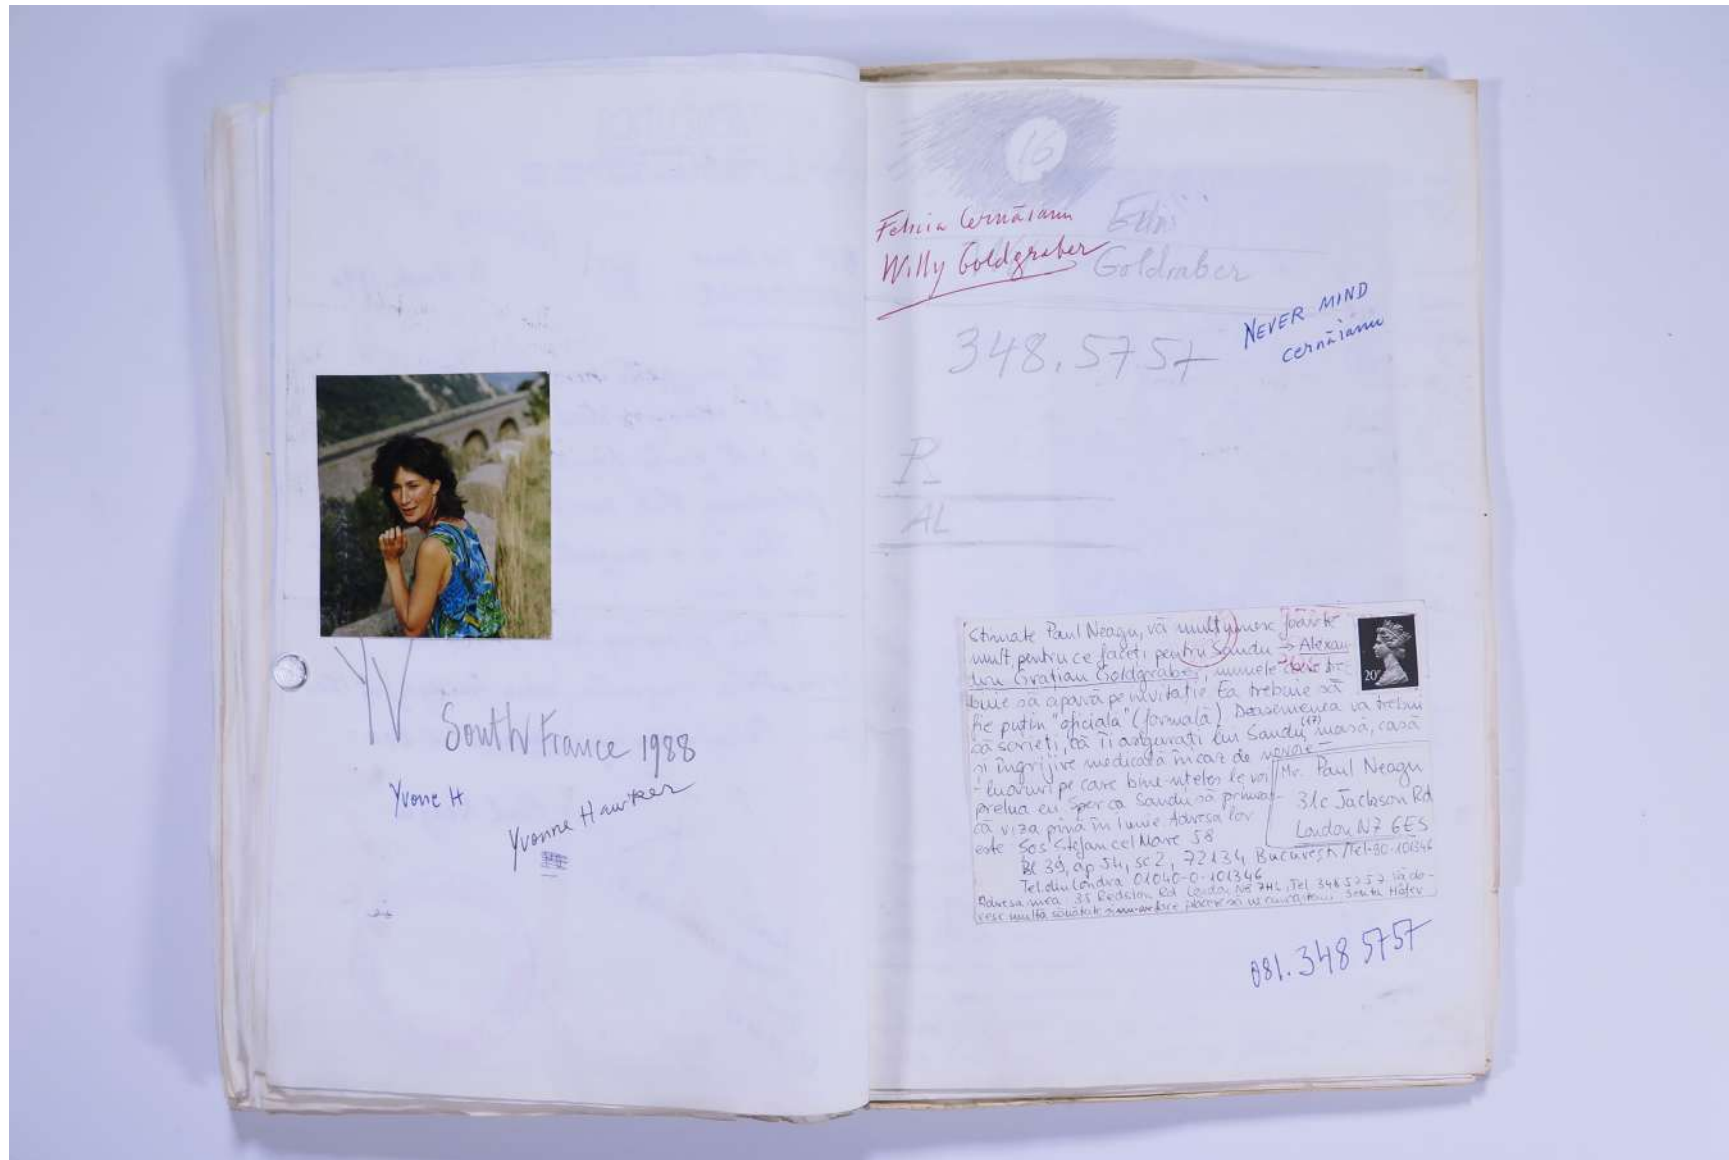 YV
South France 1988
Yvonne H
Yvonne Hawker
16
Felicia Cernăianu
Willy Goldgraber
Edi
Goldraber
348.5757
NEVER MIND
cernăianu
P
AL
Stimate Paul Neagu, vă mulțumesc foarte
mult, pentru ce faceți pentru Sandu → Alexan-
dru Grațian Goldgraber, numele care tre-
buie să apară pe invitație. Ea trebuie să
fie puțin "oficială" (formală). Deasemenea va trebui
să scrieți, că îi asigurați lui Sandu (17) masă, casă
și îngrijire medicală în caz de nevoie –
- lucruri pe care bine-nțeles le voi
prelua eu. Sper ca Sandu să primeas-
că viza pînă în iunie. Adresa lor
este Șos Ștefan cel Mare 58
Bl 39, ap 54, sc 2, 72134, București /Tel-90-101346
Tel. din Londra 01040-0-101346
Adresa mea 35 Rd London N8 7HL, Tel. 3485757. Vă do-
resc multă sănătate
Mr. Paul Neagu
31c Jackson Rd
London N7 6ES
20P
081.348 5757